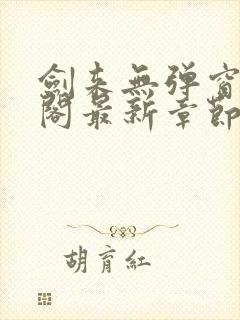 劍來無彈窗
閣最新章節
胡育紅